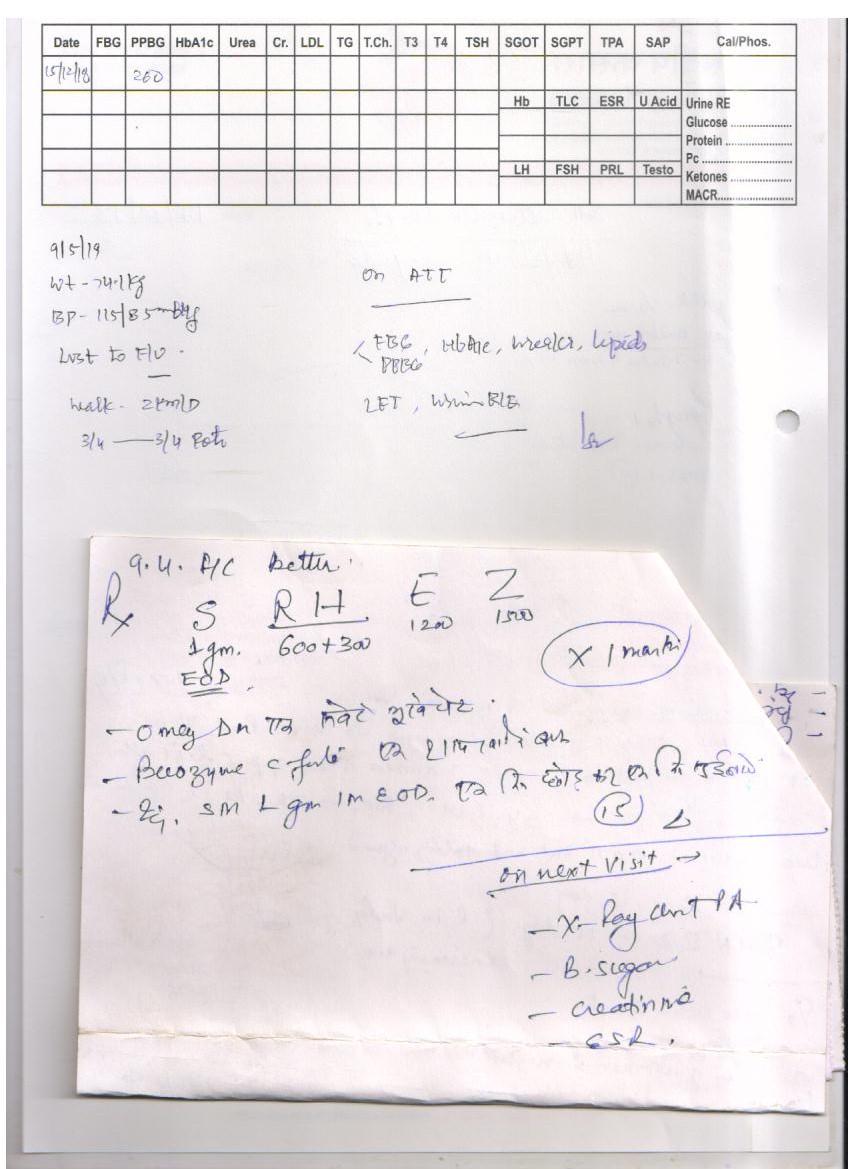 Date FBG PPBG HbA1c Urea Cr. LDL TG T.Ch. T3 T4 TSH SGOT SGPT TPA SAP Cal/Phos.
15/12/18 260
Hb TLC ESR U Acid Urine RE
Glucose ....................
Protein ....................
Pc ....................
LH FSH PRL Testo Ketones ....................
MACR....................
9/5/19
Wt - 74.1kg
BP - 115/85 mmHg
Lost to F/U.
Walk - 2km/D
3/4 — 3/4 Roti
On ATT
FBG, HbA1c, Urea/Cr, Lipids
PPBG
LFT, Urine R/E
9.4. A/C better.
Rx S RH E Z
1gm. 600+300 1200 1500
EOD.
X 1 month
- Omez Dsr एक
- Becozyme C forte एक
- Inj. SM 1 gm IM EOD. एक दिन छोड़ कर एक दिन
15
on next visit →
- X-Ray chest PA
- B. sugar
- Creatinine
- ESR.